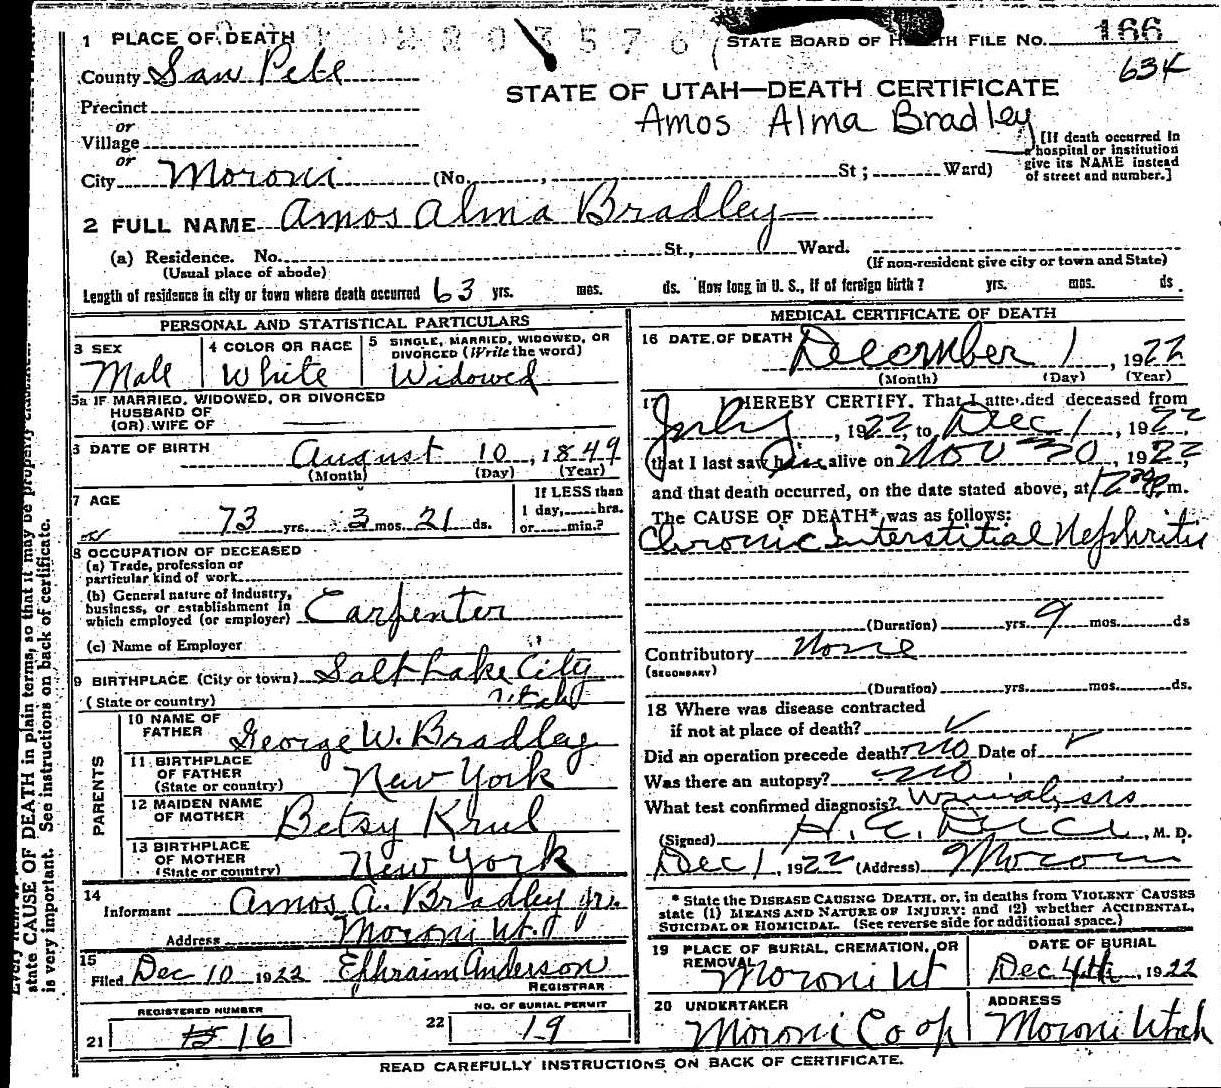 1 PLACE OF DEATH
STATE BOARD OF HEALTH FILE NO. 166
634
County San Pete
STATE OF UTAH—DEATH CERTIFICATE
Precinct
Amos Alma Bradley
or
Village
or
City Moroni (No. , St; Ward)
[If death occurred in
a hospital or institution
give its NAME instead
of street and number.]
2 FULL NAME Amos Alma Bradley
(a) Residence. No. St., Ward.
(Usual place of abode) (If non-resident give city or town and State)
Length of residence in city or town where death occurred 63 yrs. mos. ds. How long in U. S., if of foreign birth? yrs. mos. ds.
PERSONAL AND STATISTICAL PARTICULARS
3 SEX Male
4 COLOR OR RACE White
5 SINGLE, MARRIED, WIDOWED, OR
DIVORCED (Write the word)
Widowed
5a IF MARRIED, WIDOWED, OR DIVORCED
HUSBAND OF
(OR) WIFE OF
DATE OF BIRTH August 10, 1849
(Month) (Day) (Year)
7 AGE
73 yrs. 3 mos. 21 ds.
If LESS than
1 day, hrs.
or min.?
8 OCCUPATION OF DECEASED
(a) Trade, profession or
particular kind of work
(b) General nature of industry,
business, or establishment in
which employed (or employer) Carpenter
(c) Name of Employer
9 BIRTHPLACE (City or town) Salt Lake City
(State or country) Utah
PARENTS
10 NAME OF
FATHER George W. Bradley
11 BIRTHPLACE
OF FATHER
(State or country) New York
12 MAIDEN NAME
OF MOTHER Betsy Krul
13 BIRTHPLACE
OF MOTHER
(State or country) New York
14
Informant Amos A. Bradley jr.
Address Moroni Ut.
15
Filed Dec 10 1922 Ephraim Anderson
REGISTRAR
REGISTERED NUMBER
21 16
NO. OF BURIAL PERMIT
22 19
MEDICAL CERTIFICATE OF DEATH
16 DATE OF DEATH December 1, 1922
(Month) (Day) (Year)
17 I HEREBY CERTIFY, That I attended deceased from
July, 1922, to Dec 1, 1922,
that I last saw him alive on Nov 30, 1922,
and that death occurred, on the date stated above, at m.
The CAUSE OF DEATH* was as follows:
Chronic Interstitial Nephritis
(Duration) yrs. 9 mos. ds
Contributory None
(SECONDARY)
(Duration) yrs. mos. ds.
18 Where was disease contracted
if not at place of death?
Did an operation precede death? no Date of
Was there an autopsy? no
What test confirmed diagnosis?
(Signed) H. E. , M. D.
Dec 1, 1922 (Address) Moroni
* State the DISEASE CAUSING DEATH, or, in deaths from VIOLENT CAUSES
state (1) MEANS AND NATURE OF INJURY; and (2) whether ACCIDENTAL,
SUICIDAL OR HOMICIDAL. (See reverse side for additional space.)
19 PLACE OF BURIAL, CREMATION, OR
REMOVAL Moroni Ut
DATE OF BURIAL
Dec 4th, 1922
20 UNDERTAKER
Moroni Co op
ADDRESS
Moroni Utah
READ CAREFULLY INSTRUCTIONS ON BACK OF CERTIFICATE.
state CAUSE OF DEATH in plain terms, so that it may be properly
is very important. See instructions on back of certificate.